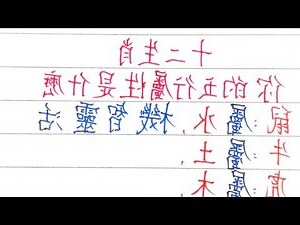 十二生肖
你的五行屬性是什麽
鼠:屬水,機智靈活
牛:屬土,
虎:屬木,